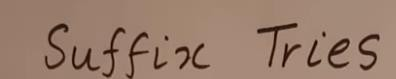 Suffix Tries